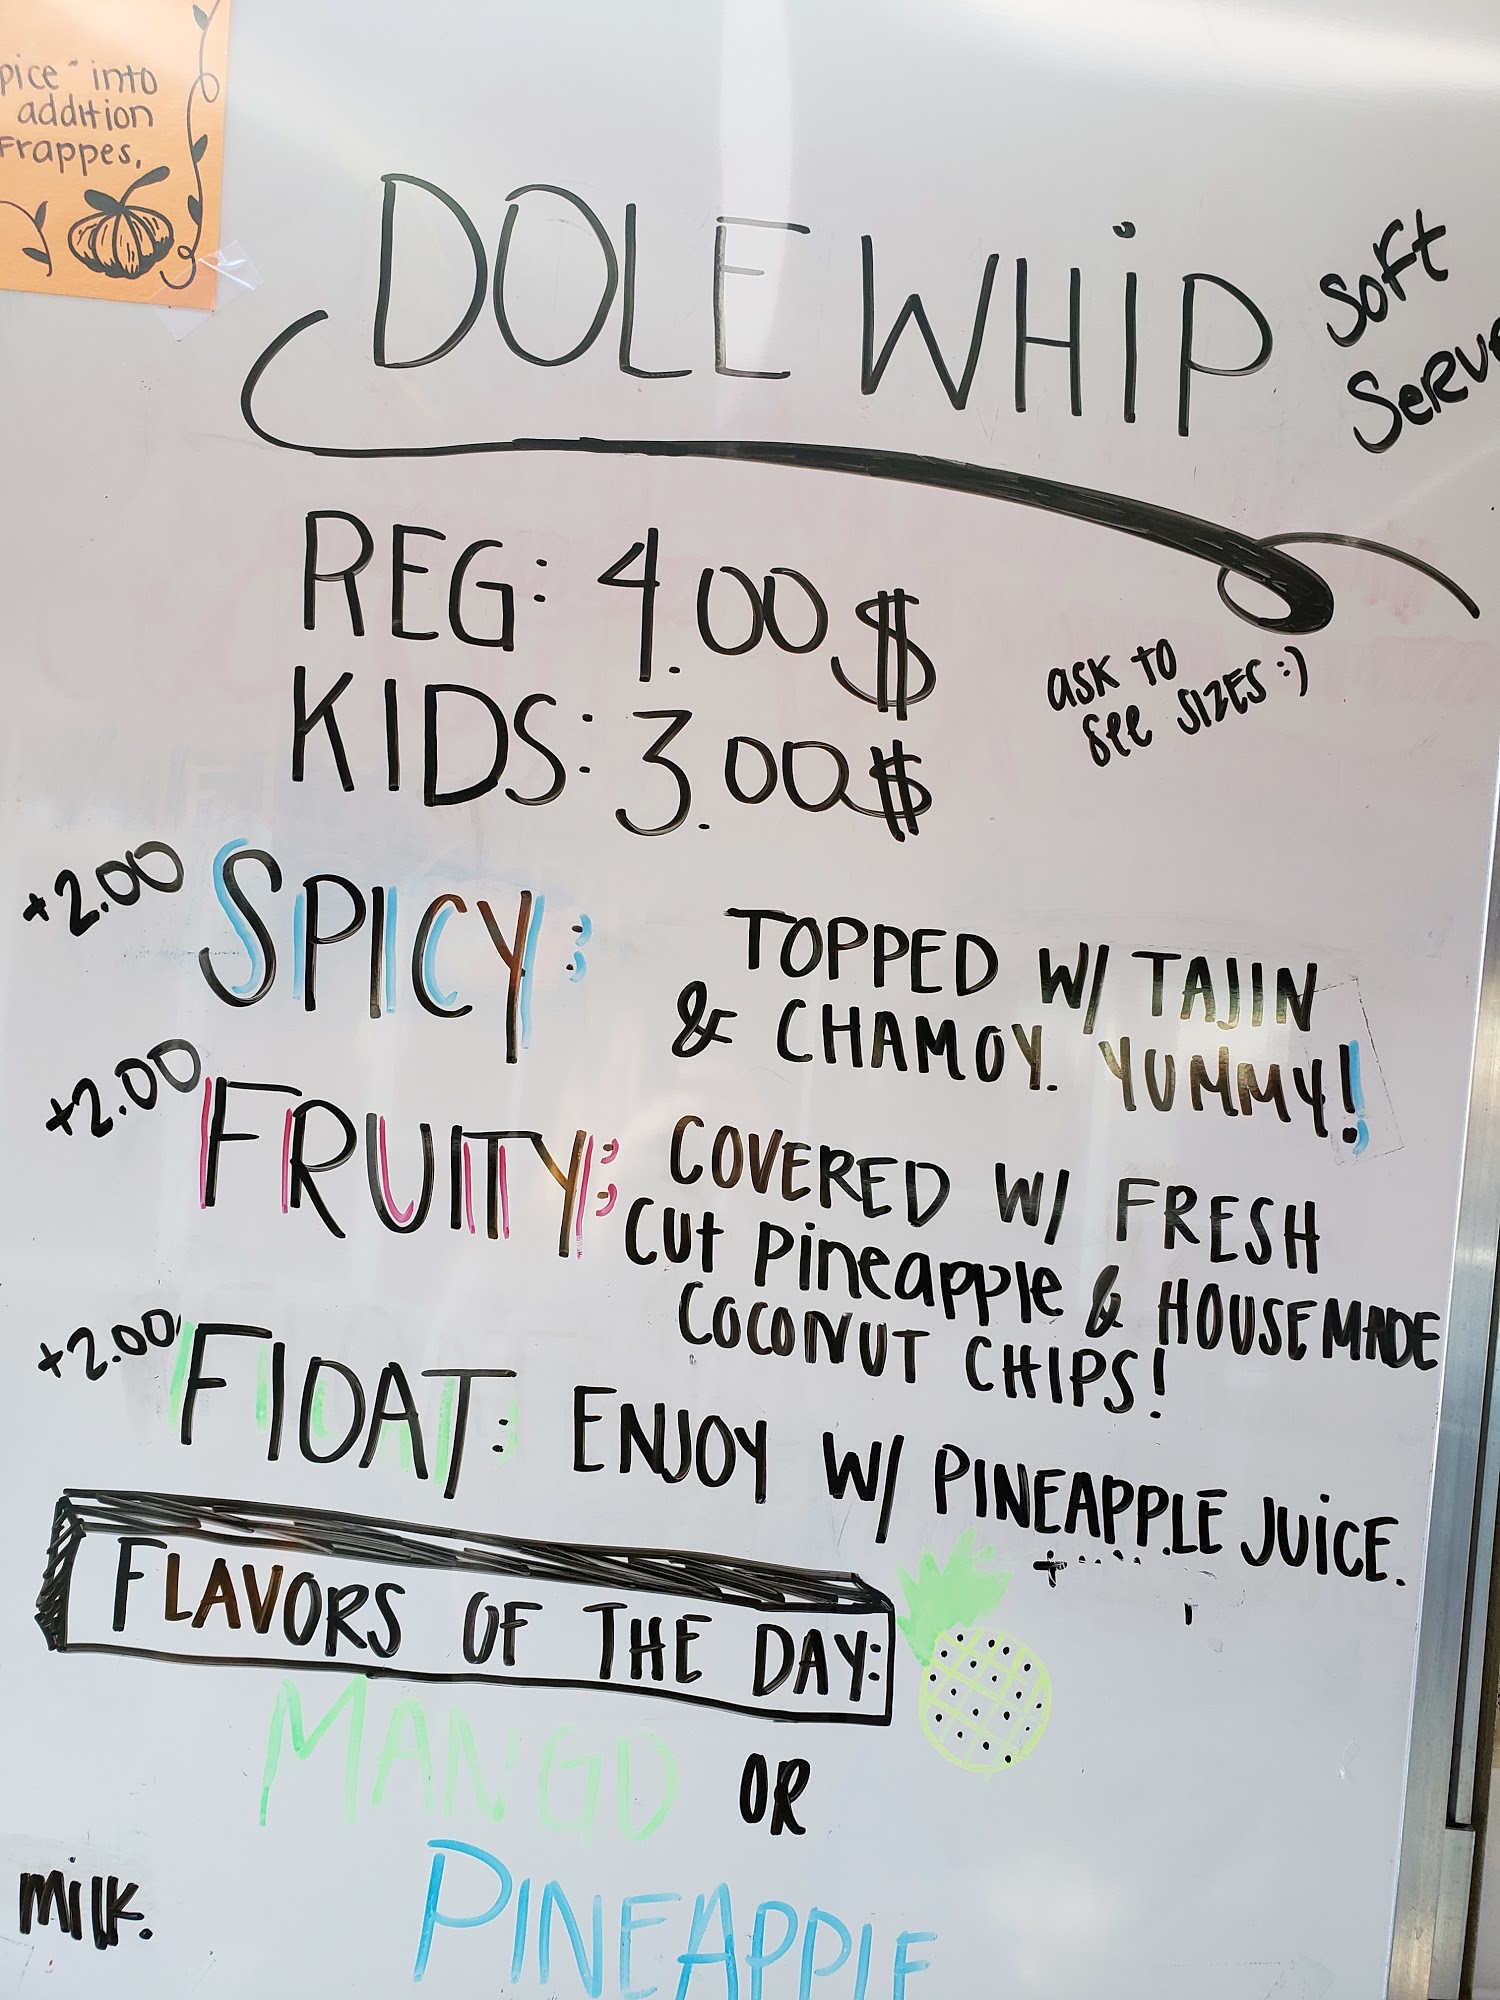 pice" into
addition
Frappes.
DOLE WHiP
Soft
Serve
REG: 4.00$
KIDS: 3.00$
ask to
see SIZES :)
+2.00 SPICY: TOPPED W/ TAJIN
& CHAMOY. YUMMY!
+2.00 FRUITY: COVERED W/ FRESH
Cut Pineapple & HOUSEMADE
COCONUT CHIPS!
+2.00 FlOAT: ENJOY W/ PINEAPPLE JUiCE.
FLAVORS OF THE DAY:
MANGO OR
PINEAPPLE
milk.